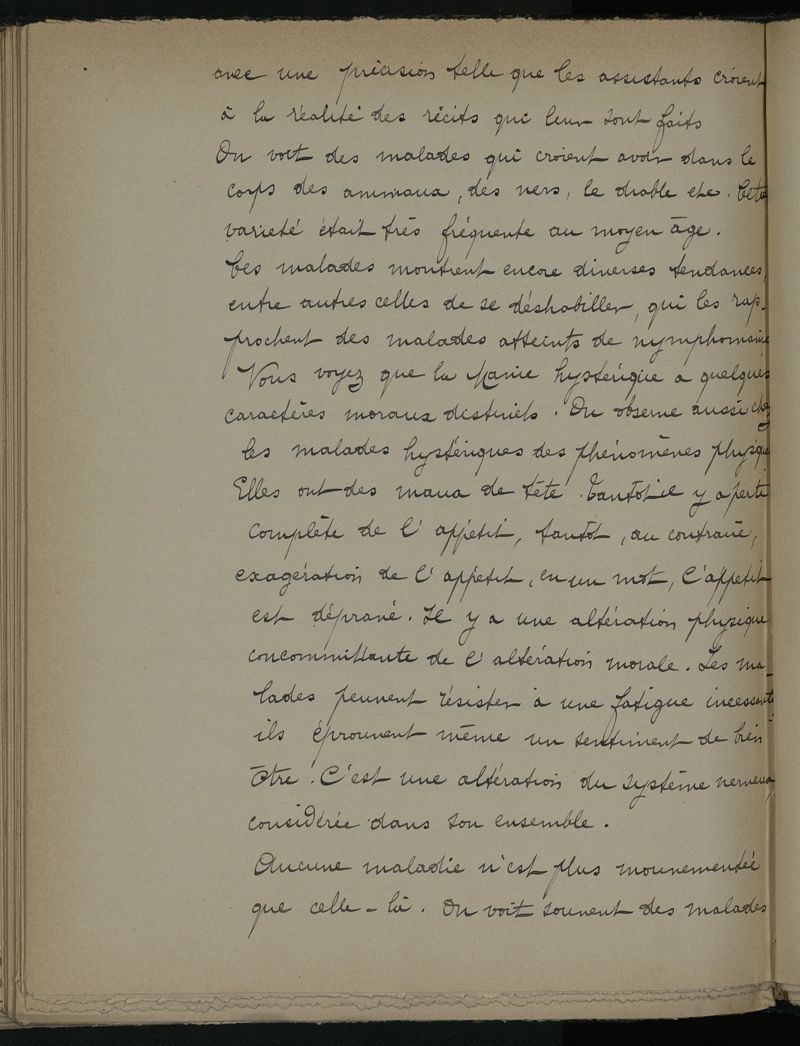 avec une précision telle que les assistants croient
à la réalité des récits qui leur sont faits
On voit des malades qui croient avoir dans le
corps des animaux, des vers, le diable etc. Cette
varieté était très fréquente au moyen âge.
Ces malades montrent encore diverses tendances,
entre autres celles de se déshabiller, qui les rap-
prochent des malades atteints de nymphomanie
Vous voyez que la Manie hystérique a quelques
caractères moraux distincts. On observe aussi chez
les malades hystériques des phénomènes physiques
Elles ont des maux de tête. Tantôt il y a perte
complète de l'appétit, tantôt, au contraire,
exagération de l'appétit, en un mot, l'appetit
est dépravé. Il y a une altération physique
concommittante de l'altération morale. Les ma-
lades peuvent résister à une fatigue incessante
ils éprouvent même un sentiment de bien
être. C'est une altération du système nerveux
considérée dans son ensemble.
Aucune maladie n'est plus mouvementée
que celle-là. On voit souvent des malades